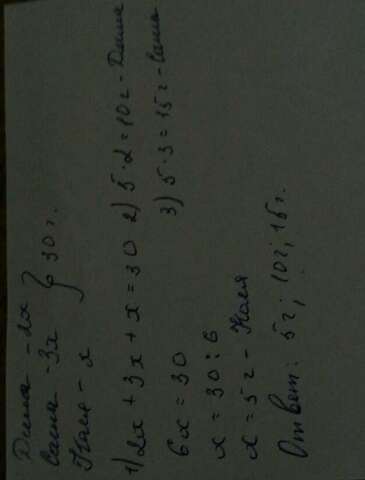 Дима - 2x
Саша - 3x } 30 г.
Коля - x
1) 2x + 3x + x = 30 2) 5·2=10 г - Дима
6x = 30 3) 5·3=15 г - Саша
x = 30:6
x = 5 г - Коля
Ответ: 5 г; 10 г; 15 г.